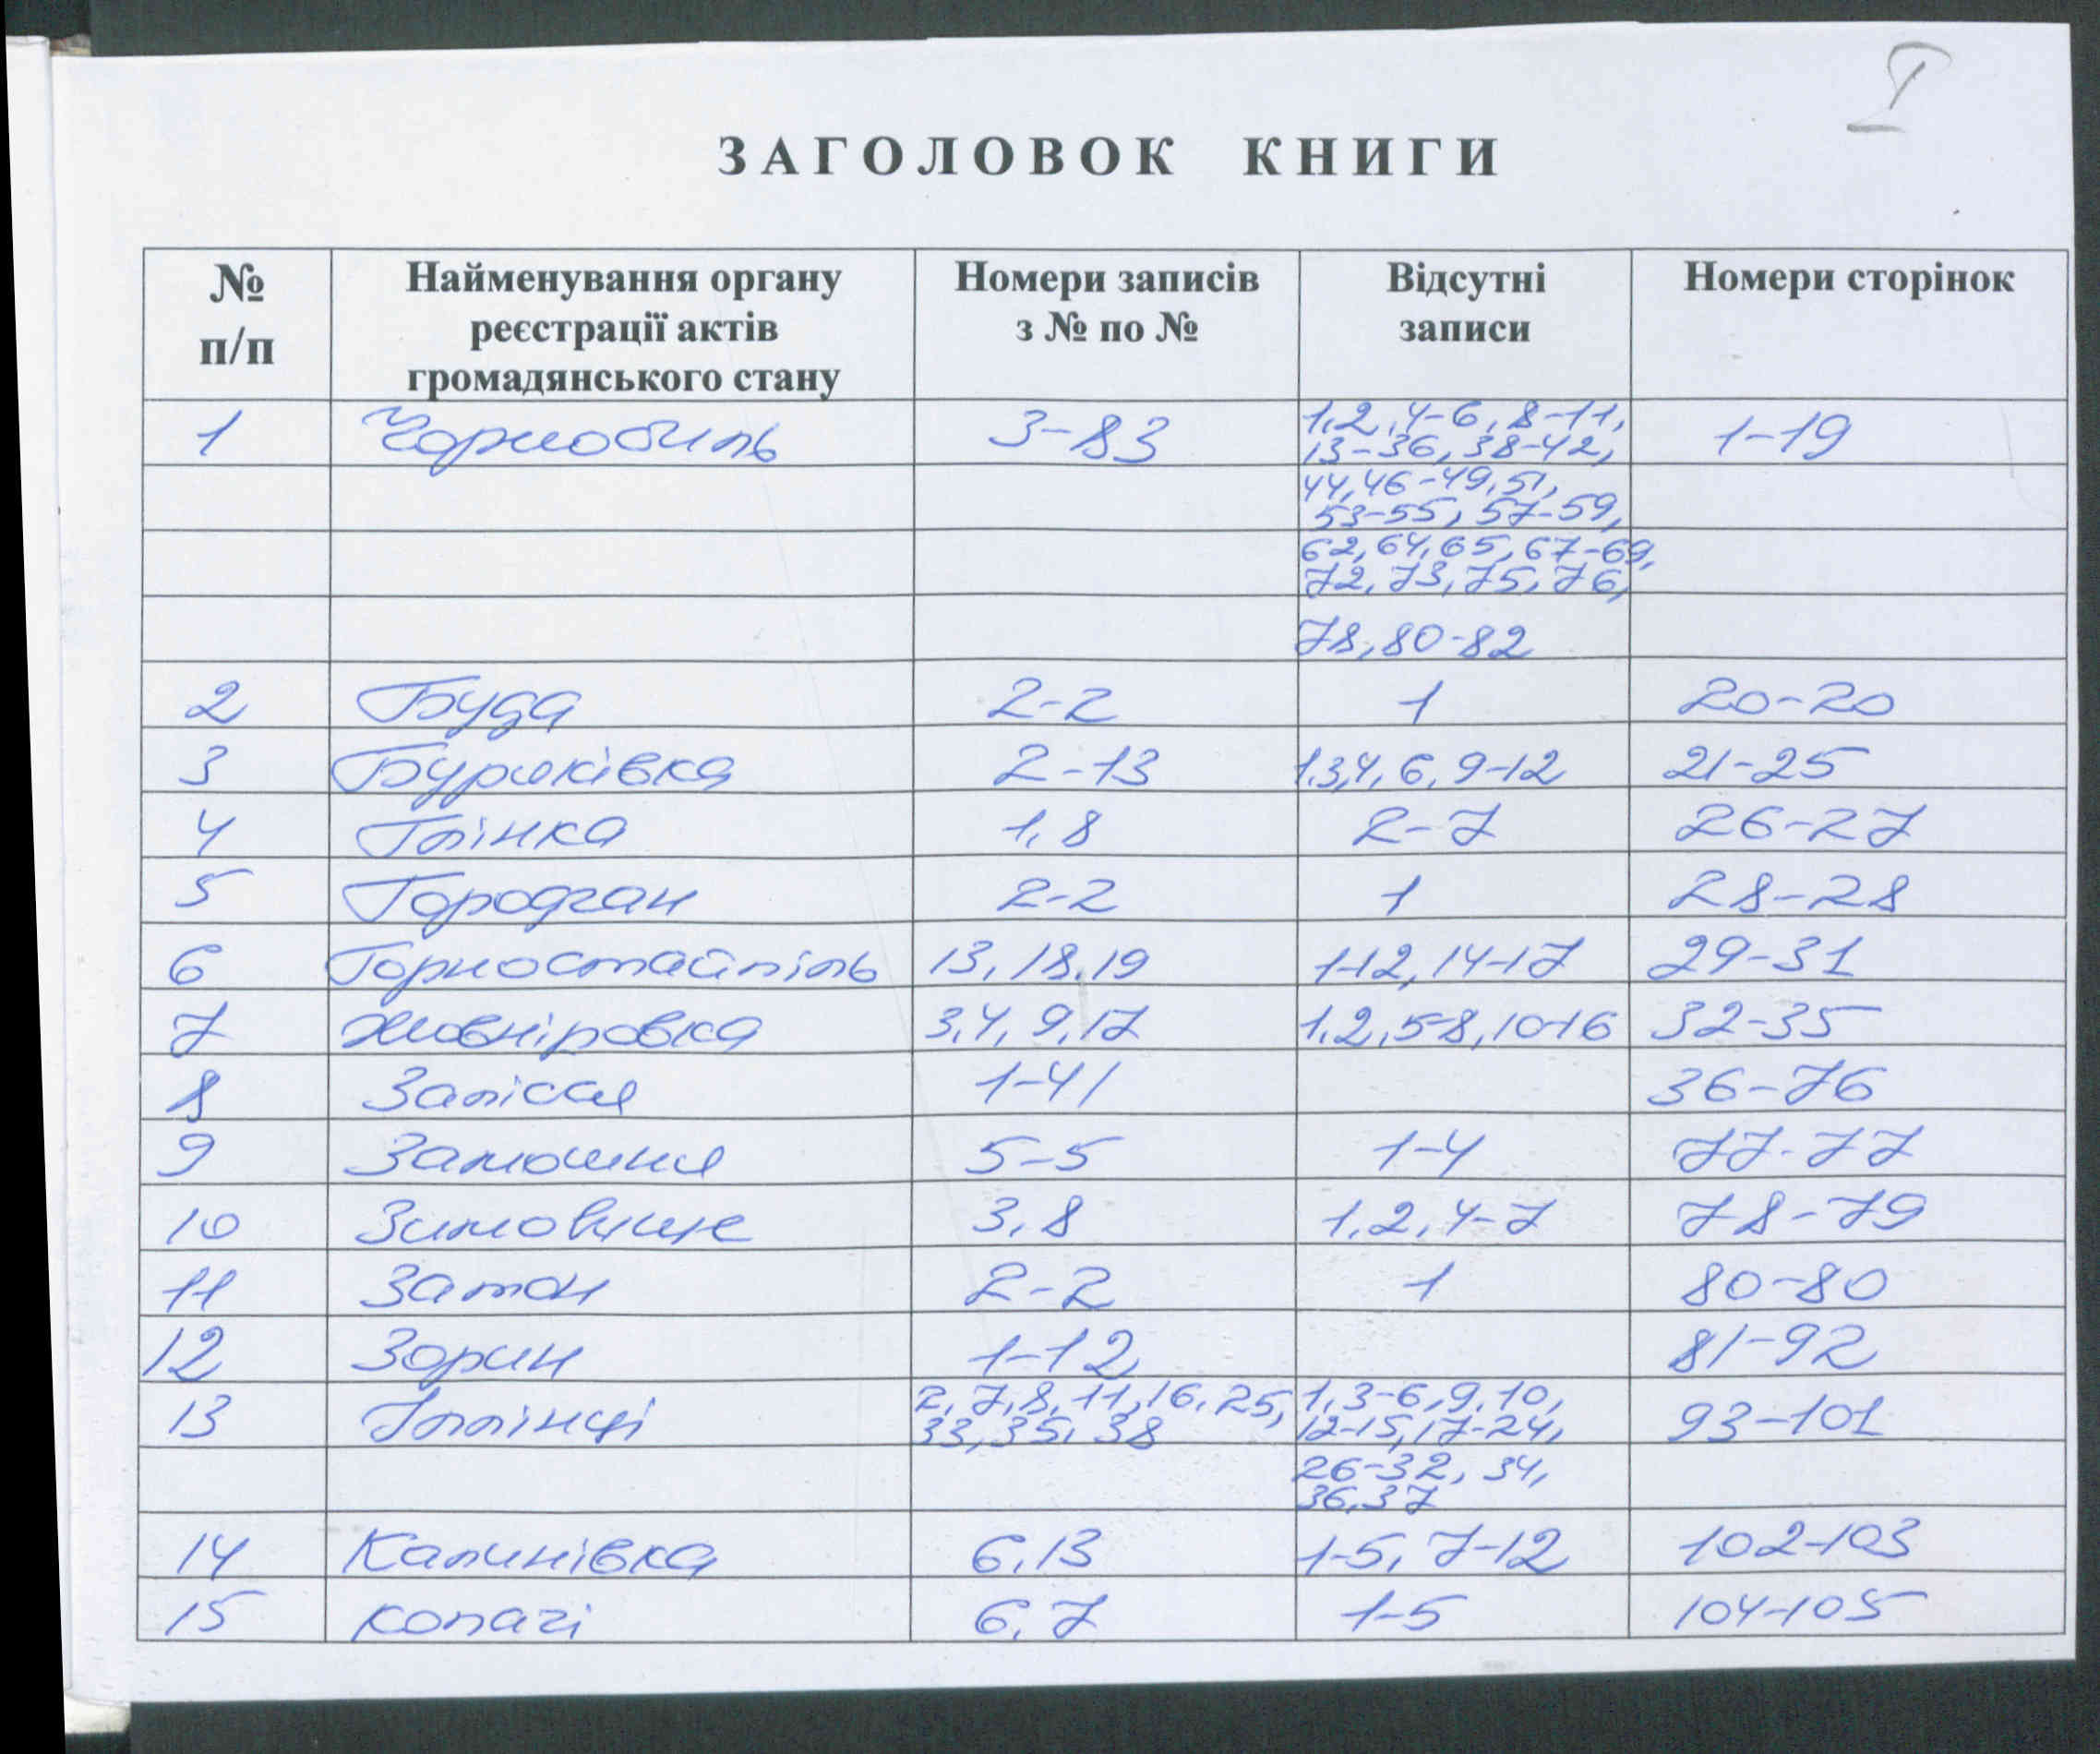 I
ЗАГОЛОВОК КНИГИ
№ п/п Найменування органу реєстрації актів громадянського стану Номери записів з № по № Відсутні записи Номери сторінок
1 Чорнобиль 3-83 1,2,4-6,8-11, 1-19
13-36,38-42,
44,46-49,51,
53-55,57-59,
62,64,65,67-69,
72,73,75,76,
78,80-82
2 Буда 2-2 1 20-20
3 Буряківка 2-13 1,3,4,6,9-12 21-25
4 Глінка 1,8 2-7 26-27
5 Городчан 2-2 1 28-28
6 Горностайпіль 13,18,19 1-12,14-17 29-31
7 Жовніровка 3,4,9,17 1,2,5-8,10-16 32-35
8 Залісся 1-41 36-76
9 Замошня 5-5 1-4 77-77
10 Зимовище 3,8 1,2,4-7 78-79
11 Затон 2-2 1 80-80
12 Зорин 1-12 81-92
13 Іллінці 2,7,8,11,16,25, 1,3-6,9,10, 93-101
33,35,38 12-15,17-24,
26-32,34,
36,37
14 Калинівка 6,13 1-5,7-12 102-103
15 Копачі 6,7 1-5 104-105